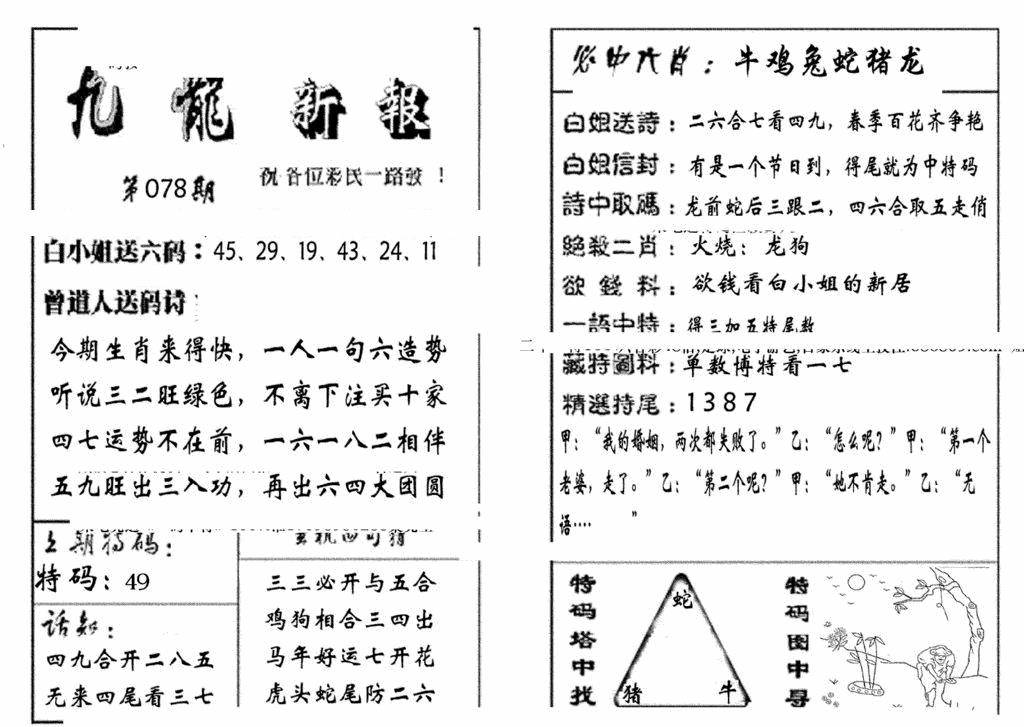 九龍新報
第078期
祝各位彩民一路發！
白小姐送六码：45、29、19、43、24、11
曾道人送码诗
今期生肖来得快，一人一句六造势
听说三二旺绿色，不离下注买十家
四七运势不在前，一六一八二相伴
五九旺出三入功，再出六四大团圆
上期特码：
特码：49
话知：
四九合开二八五
无来四尾看三七
三三必开与五合
鸡狗相合三四出
马年好运七开花
虎头蛇尾防二六
必中六肖：牛鸡兔蛇猪龙
白姐送詩：二六合七看四九，春季百花齐争艳
白姐信封：有是一个节日到，得尾就为中特码
詩中取碼：龙前蛇后三跟二，四六合取五走俏
絕殺二肖：火烧：龙狗
欲錢料：欲钱看白小姐的新居
一語中特：得三加五特尾数
藏特圖料：单数博特看一七
精選特尾：1387
甲：“我的婚姻，两次都失败了。”乙：“怎么呢？”甲：“第一个
老婆，走了。”乙：“第二个呢？”甲：“她不肯走。”乙：“无
语…… ”
特码塔中找
蛇
猪
牛
特码图中寻